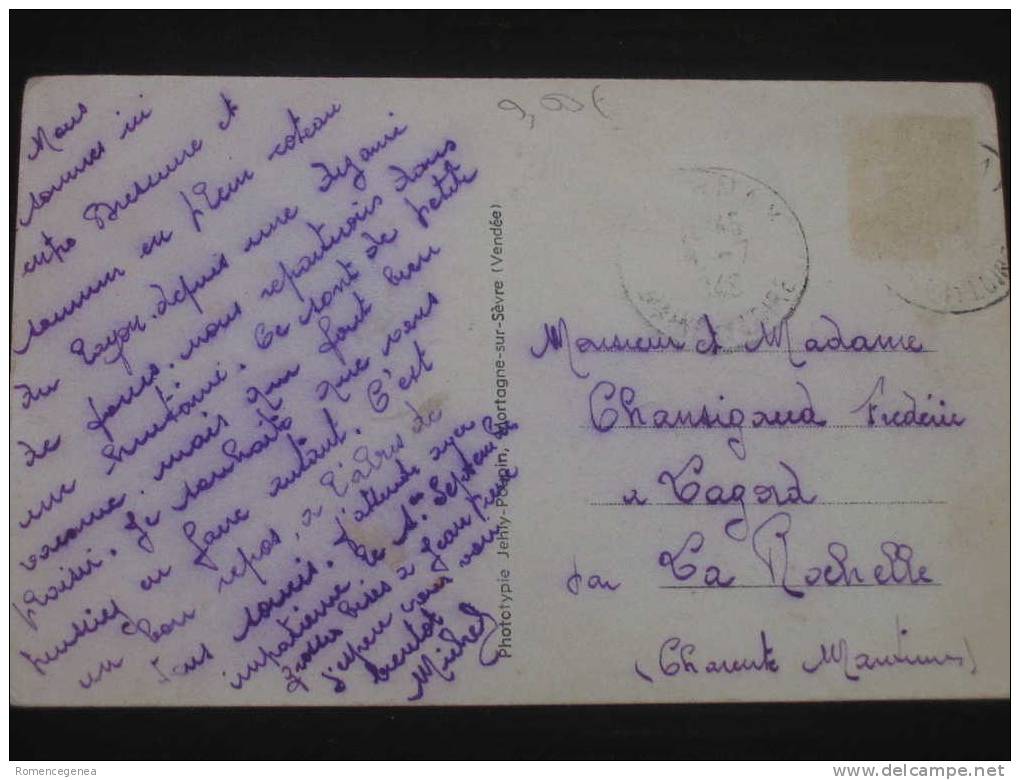 Nous
sommes ici
entre Bressuire et
Saumur en plein coteau
du Layon. depuis une dizaine
de jours. nous repartirons dans
une huitaine. Ce sont de petite
vacance. mais qui font bien
plaisir. Je souhaite que vous
puissiez en faire autant. C'est
un bon repos, à l'abri de
tous soucis. J'attends avec
impatience le 1er Septembre
grosses bises à Jean Pierre
J'espère vous voir
bientôt
Michel
Phototypie Jehly-Poupin, Mortagne-sur-Sèvre (Vendée)
9,00€
LOIRE
Monsieur et Madame
Chansigaud Frédéric
a Lagord
par La Rochelle
(Charente Maritime)
Romencegenea
www.delcampe.net